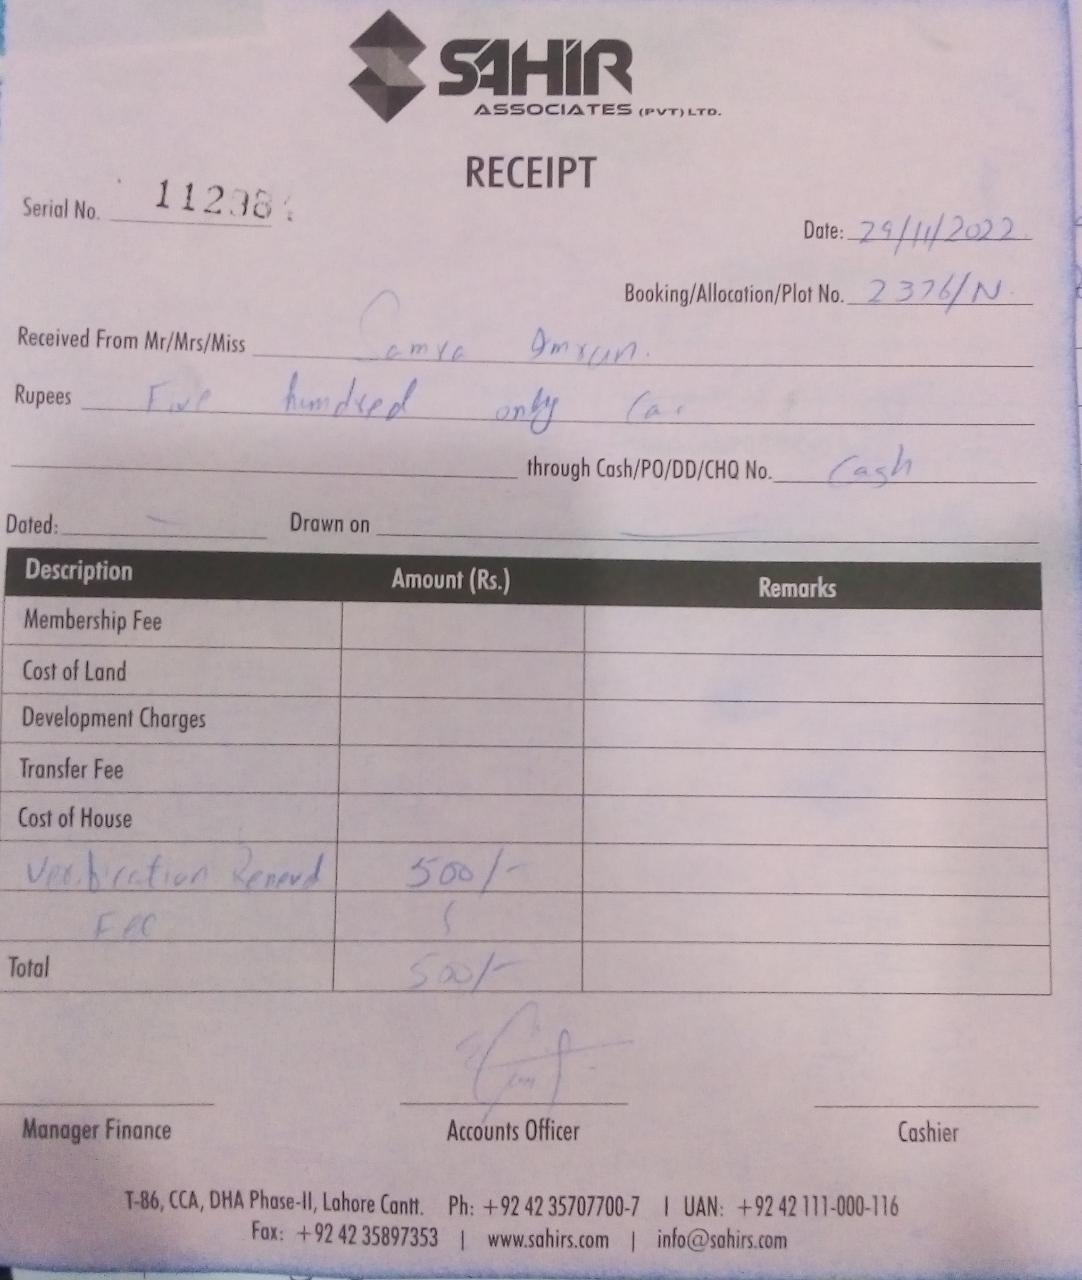 SAHIR
ASSOCIATES (PVT) LTD.
RECEIPT
Serial No. 11238
Date: 29/11/2022
Booking/Allocation/Plot No. 2376/N
Received From Mr/Mrs/Miss Imran.
Rupees Five hundred only
through Cash/PO/DD/CHQ No. Cash
Dated: — Drawn on —
Description Amount (Rs.) Remarks
Membership Fee
Cost of Land
Development Charges
Transfer Fee
Cost of House
Verification 500/-
Fee
Total 500/-
Manager Finance Accounts Officer Cashier
T-86, CCA, DHA Phase-II, Lahore Cantt. Ph: +92 42 35707700-7 | UAN: +92 42 111-000-116
Fax: +92 42 35897353 | www.sahirs.com | info@sahirs.com